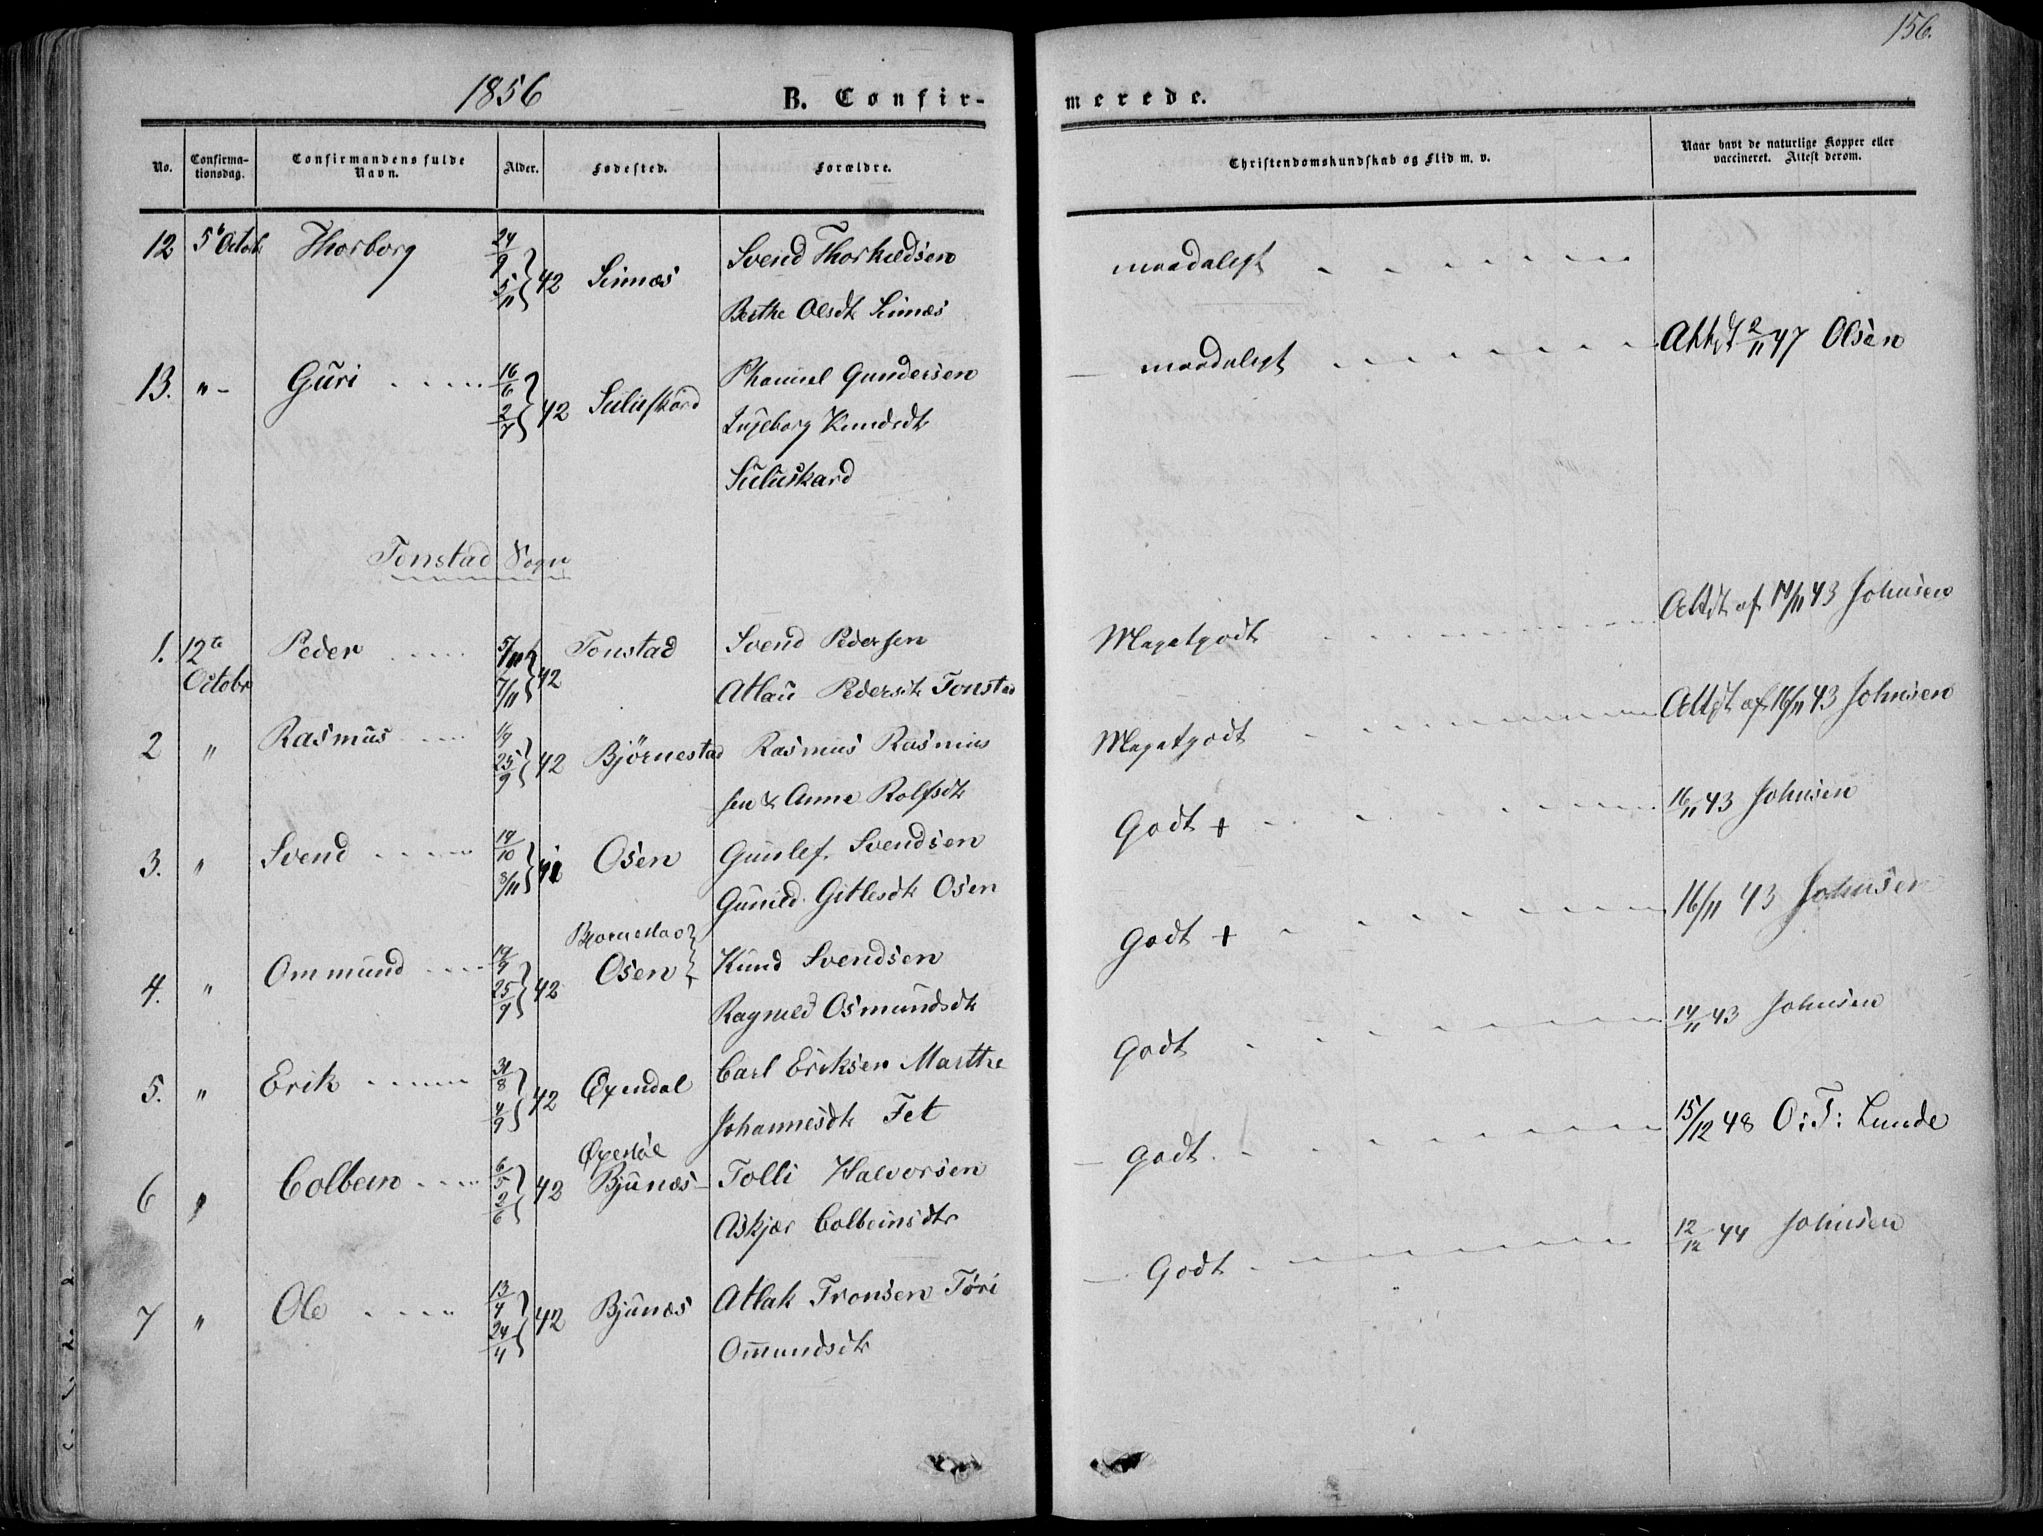 156.
1856
B. Confir-
merede.
No.
Confirma-
tionsdag.
Confirmandens fulde
Navn.
Alder.
Fødested.
Forældre.
Christendomskundskab og Flid m. v.
Naar havt de naturlige Kopper eller
vaccineret. Attest derom.
12 5t Octob Thorborg 24/9 5/11 42 Sinnæs Svend Thorkildsen
maadeligt
Berthe Olsdtr Sinnæs
Attst 2/11 47 Olsen
13. " - Guri 16/6 2/7 42 Suluskard Gundersen
maadeligt
Ingeborg Knudsdtr
Suluskard
Tonstad Sogn
1. 12te Peder 5/11 Tonstad Svend Pedersen
Octobr 7/11 42 Atlau Pedersdtr Tonstad
Megetgodt
Attst af 14/11 43 Johnsen
2 " Rasmus 25/9 42 Bjørnestad Rasmus Rasmus
sen & Anne Rolfsdtr
Megetgodt
Attst af 16/11 43 Johnsen
3. " Svend 14/10 3/11 Osen Gunlef Svendsen
Gunild Gitlesdtr Osen
Godt +
16/11 43 Johnsen
4. " Ommund 25/9 42 Bjornestad
Osen Knud Svendsen
Ragnild Osmundsdtr
Godt +
16/11 43 Johnsen
5. " Erik 31/8 4/9 42 Øxendal Carl Eriksen Marthe
Johannesdtr Fet
Godt
14/11 43 Johnsen
6 " Colbein 6/5 2/6 42 Bjunæs - Tolli Halvorsen
Askjær Colbeinsdtr
Godt
15/12 48 O: T: Lunde
7 " Ole 13/4 24/4 42 Bjunæs Atlak Tronsen Tøri
Ommundsdtr
Godt
12/12 44 Johnsen